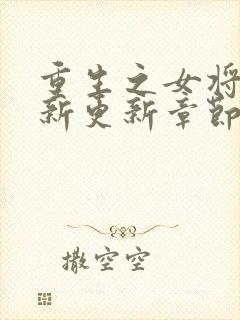 重生之女将
新更新章节
撒空空